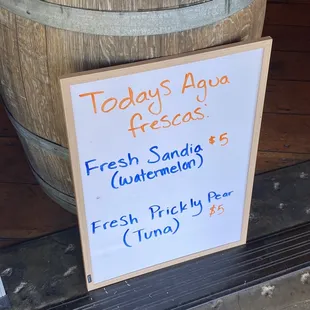 Todays Agua
frescas:
Fresh Sandia $5
(watermelon)
Fresh Prickly Pear
(Tuna) $5